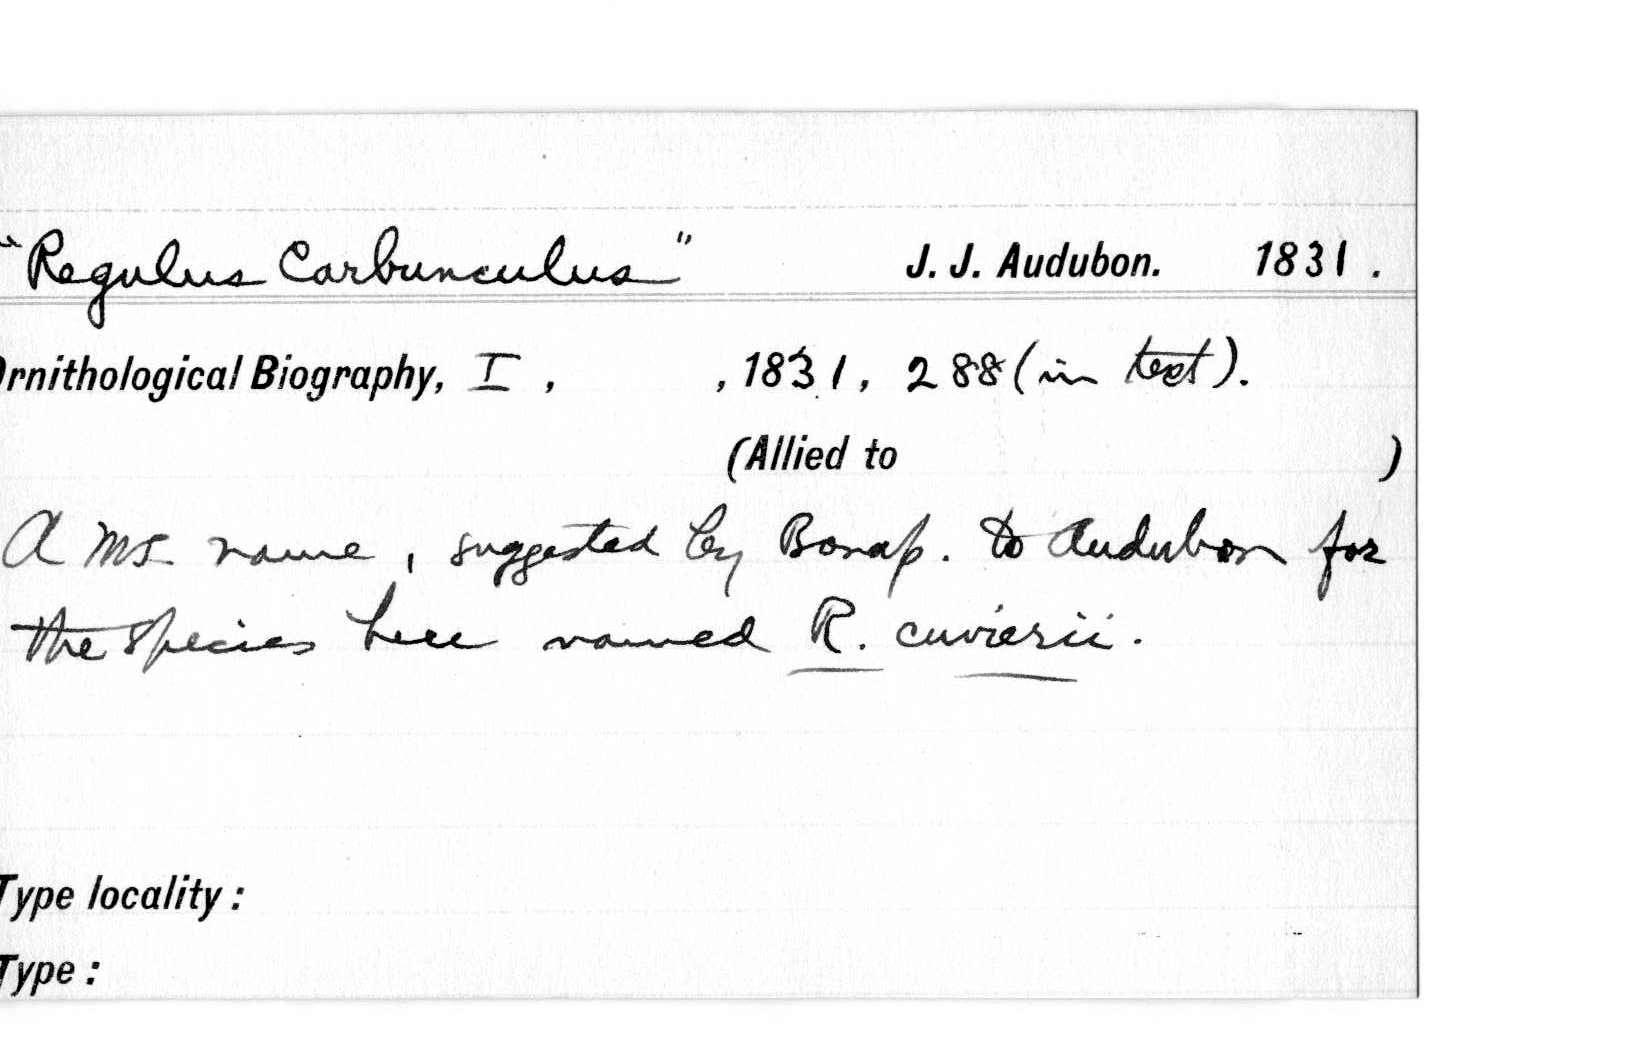 "Regulus Carbunculus" J. J. Audubon. 1831.
Ornithological Biography, I, , 1831, 288 (in text).
(Allied to )
A MS. name, suggested by Bonap. to Audubon for
the species here named R. cuvierii.
Type locality:
Type: